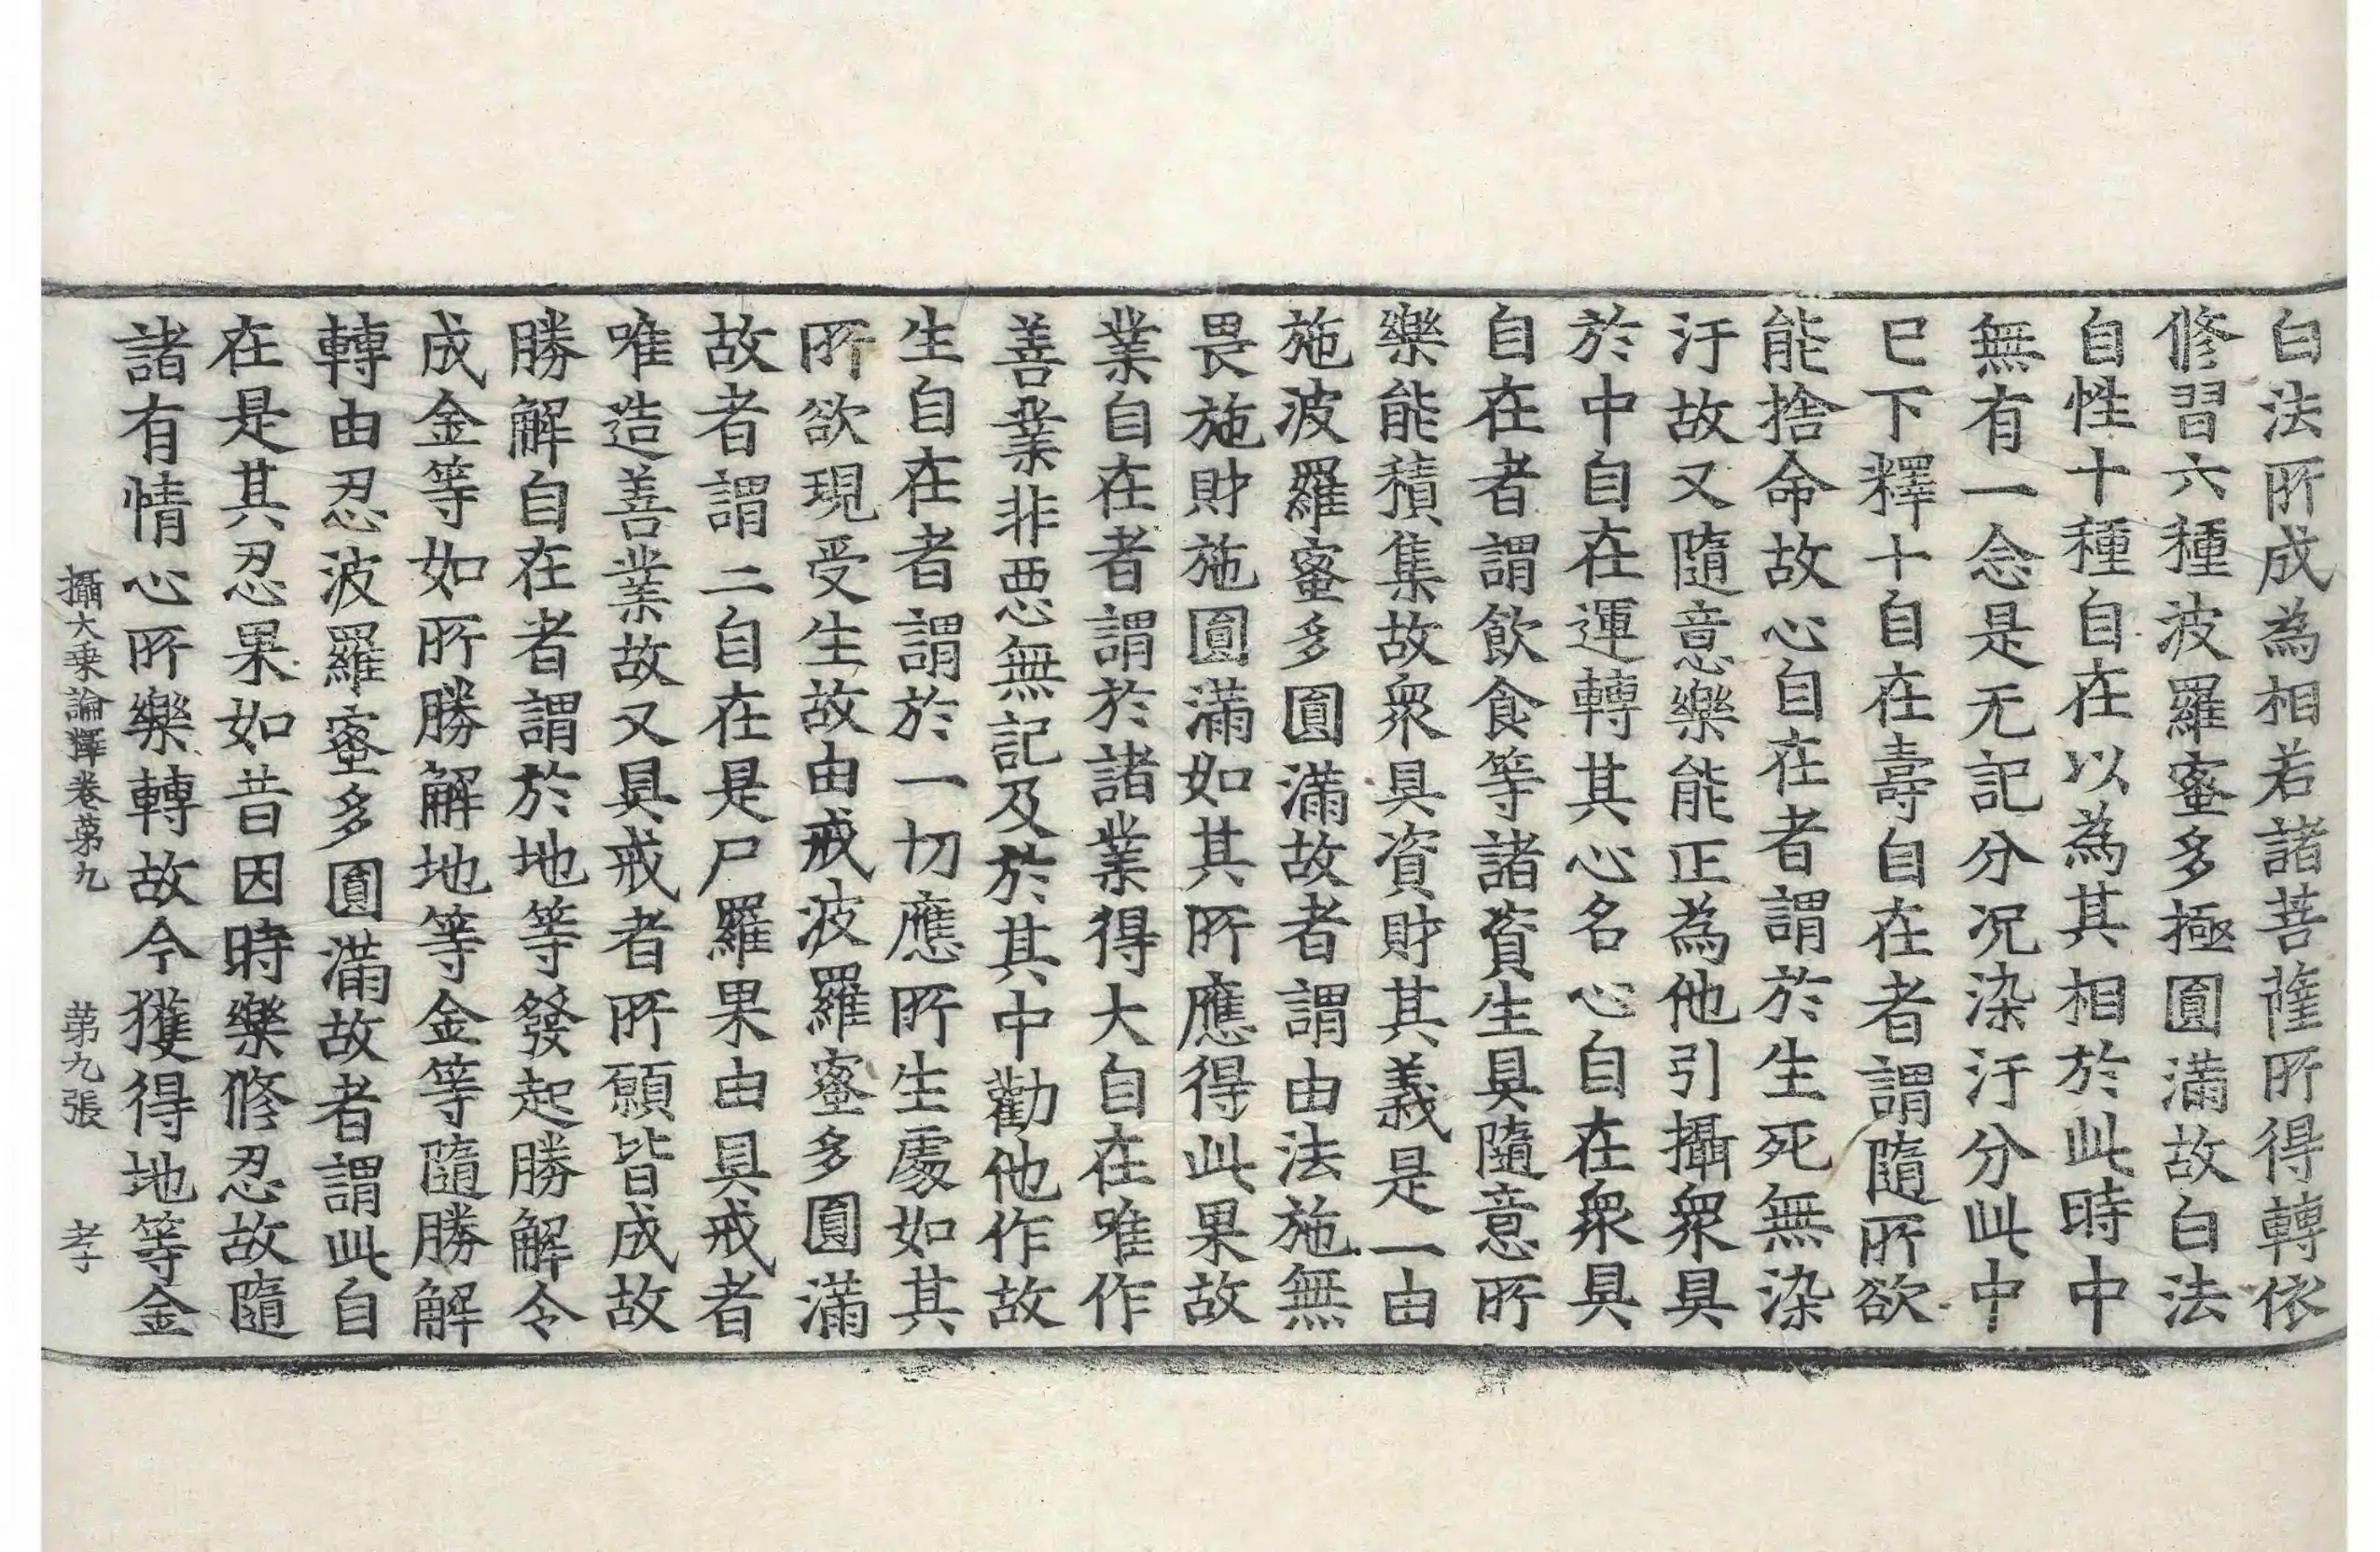 白法所成為相若諸菩薩所得轉依
修習六種波羅蜜多極圓滿故白法
自性十種自在以為其相於此時中
無有一念是无記分況染汙分此中
巳下釋十自在壽自在者謂隨所欲
能捨命故心自在者謂於生死無染
汙故又隨意樂能正為他引攝衆具
於中自在運轉其心名心自在衆具
自在者謂飲食等諸資生具隨意所
樂能積集故衆具資財其義是一由
施波羅蜜多圓滿故者謂由法施無
畏施財施圓滿如其所應得此果故
業自在者謂於諸業得大自在唯作
善業非惡無記及於其中勸他作故
生自在者謂於一切應所生處如其
所欲現受生故由戒波羅蜜多圓滿
故者謂二自在是尸羅果由具戒者
唯造善業故又具戒者所願皆成故
勝解自在者謂於地等發起勝解令
成金等如所勝解地等金等隨勝解
轉由忍波羅蜜多圓滿故者謂此自
在是其忍果如昔因時樂修忍故隨
諸有情心所樂轉故今獲得地等金
攝大乗論釋卷苐九 苐九張 孝